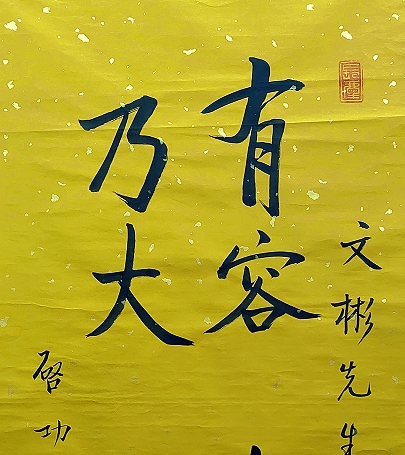 文彬先生
有容
乃大
启功